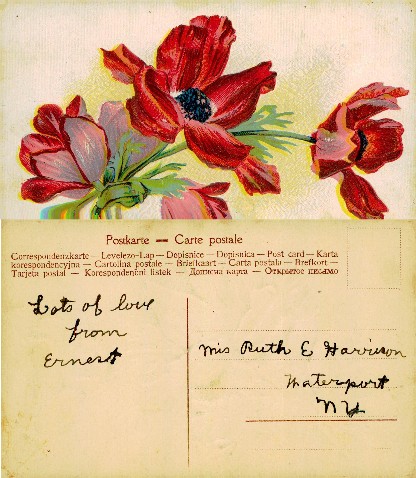 Postkarte — Carte postale
Correspondenzkarte — Levelezo-Lap — Dopisnice — Dopisnica — Post card — Karta
korespondencyjna — Cartolina postale — Briefkaart — Carta postala — Brefkort —
Tarjeta postal — Korespondenčni listek — Дописна карта — Открытое письмо
Lots of love
from
Ernest
Mis Ruth E Harrison
Waterport
NY